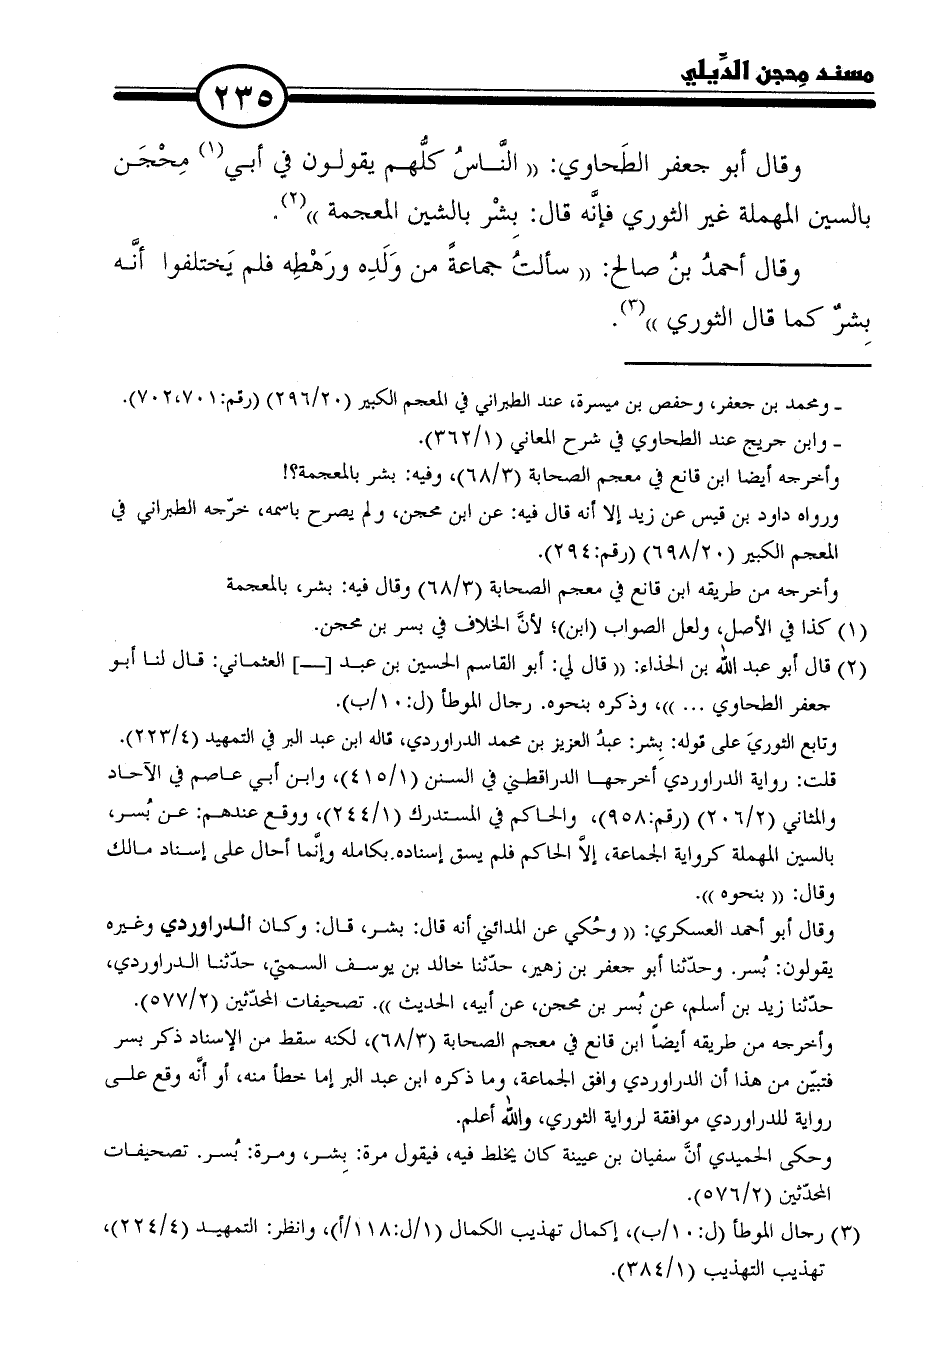 مسند مِحجن الدِّيلي
٢٣٥
وقال أبو جعفر الطَحاوي: « النَّاسُ كلُّهم يقولون في أبي(١) مِحْجَن
بالسين المهملة غير الثوري فإنَّه قال: بِشْر بالشين المعجمة »(٢).
وقال أحمدُ بنُ صالح: « سألتُ جماعةً من وَلَدِه ورَهْطِه فلم يَختلفوا أنَّه
بِشرٌ كما قال الثوري »(٣).
ـ ومحمد بن جعفر، وحفص بن ميسرة، عند الطبراني في المعجم الكبير (٢٩٦/٢٠) (رقم:٧٠٢،٧٠١).
ـ وابن جريج عند الطحاوي في شرح المعاني (٣٦٢/١).
وأخرجه أيضا ابن قانع في معجم الصحابة (٦٨/٣)، وفيه: بشر بالمعجمة؟!
ورواه داود بن قيس عن زيد إلا أنه قال فيه: عن ابن محجن، ولم يصرح باسمه، خرّجه الطبراني في
المعجم الكبير (٦٩٨/٢٠) (رقم:٢٩٤).
وأخرجه من طريقه ابن قانع في معجم الصحابة (٦٨/٣) وقال فيه: بشر، بالمعجمة
(١) كذا في الأصل، ولعل الصواب (ابن)؛ لأنَّ الخلاف في بسر بن محجن.
(٢) قال أبو عبد الله بن الحذاء: « قال لي: أبو القاسم الحسين بن عبد [ــ] العثماني: قال لنا أبو
جعفر الطحاوي ... »، وذكره بنحوه. رجال الموطأ (ل:١٠/ب).
وتابع الثوريَ على قوله: بِشر: عبدُ العزيز بن محمد الدراوردي، قاله ابن عبد البر في التمهيد (٢٢٣/٤).
قلت: رواية الدراوردي أخرجها الدراقطني في السنن (٤١٥/١)، وابن أبي عاصم في الآحاد
والمثاني (٢٠٦/٢) (رقم:٩٥٨)، والحاكم في المستدرك (٢٤٤/١)، ووقع عندهم: عن بُسر،
بالسين المهملة كرواية الجماعة، إلاَّ الحاكم فلم يسق إسناده.بكامله وإنَّما أحال على إسناد مالك
وقال: « بنحوه ».
وقال أبو أحمد العسكري: « وحُكي عن المدائني أنه قال: بشر، قال: وكان الدراوردي وغيره
يقولون: بُسر. وحدّثنا أبو جعفر بن زهير، حدّثنا خالد بن يوسف السمتي، حدّثنا الدراوردي،
حدّثنا زيد بن أسلم، عن بُسر بن محجن، عن أبيه، الحديث ». تصحيفات المحدّثين (٥٧٧/٢).
وأخرجه من طريقه أيضاً ابن قانع في معجم الصحابة (٦٨/٣)، لكنه سقط من الإسناد ذكر بسر
فتبيّن من هذا أن الدراوردي وافق الجماعة، وما ذكره ابن عبد البر إما خطأ منه، أو أنَّه وقع على
رواية للدراوردي موافقة لرواية الثوري، والله أعلم.
وحكى الحميدي أنَّ سفيان بن عيينة كان يخلط فيه، فيقول مرة: بِشر، ومرة: بُسر. تصحيفات
المحدّثين (٥٧٦/٢).
(٣) رجال الموطأ (ل:١٠/ب)، إكمال تهذيب الكمال (١/ل:١١٨/أ)، وانظر: التمهيد (٢٢٤/٤)،
تهذيب التهذيب (٣٨٤/١).